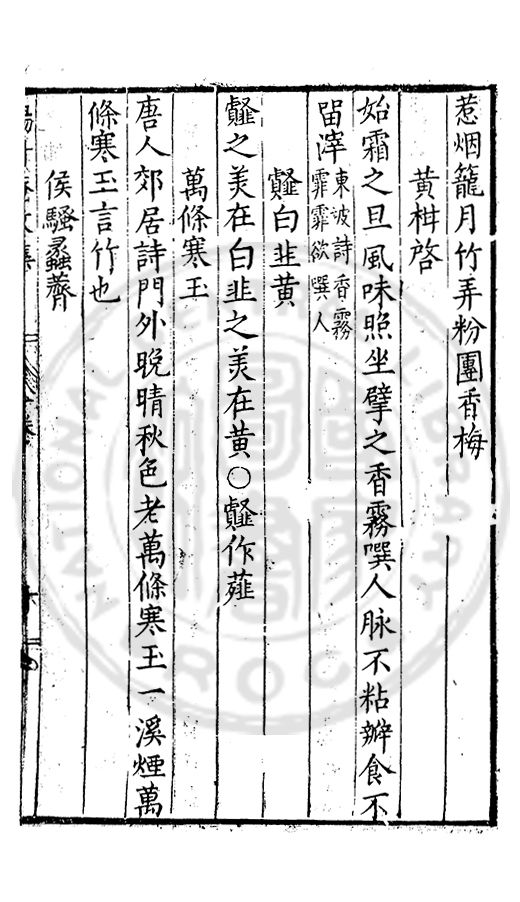 惹烟籠月竹弄粉團香梅
黃柑啓
始霜之旦風味照坐擘之香霧噀人脉不粘瓣食不
留滓東坡詩香霧
霏霏欲噀人
䪥白韭黃
䪥之美在白韭之美在黃○䪥作薤
萬條寒玉
唐人郊居詩門外晚晴秋色老萬條寒玉一溪煙萬
條寒玉言竹也
侯騷蟸薺